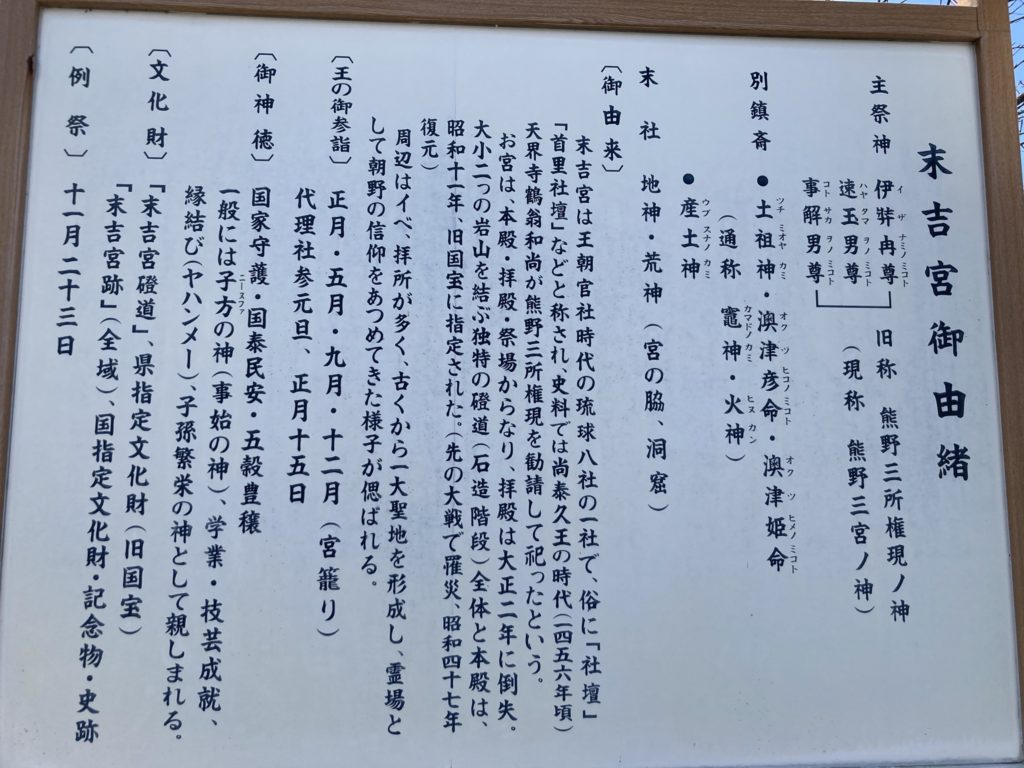 末吉宮御由緒
主祭神 伊弉冉尊 旧称 熊野三所権現ノ神
イ ザ ナミノ ミコト
速玉男尊 (現称 熊野三宮ノ神)
ハヤ タマ ヲノ ミコト
事解男尊
コト サカ ヲノ ミコト
別鎮斎 ●土祖神・澳津彦命・澳津姫命
ツチ ミオヤ カミ オフ ツ ヒコノ ミコト オフ ツ ヒメノ ミコト
(通称 竈神・火神)
カマドノ カミ ヒヌ カン
●産土神
ウブ スナノ カミ
末社 地神・荒神(宮の脇、洞窟)
〔御由来〕
末吉宮は王朝官社時代の琉球八社の一社で、俗に「社壇」
「首里社壇」などと称され、史料では尚泰久王の時代(一四五六年頃)
天界寺鶴翁和尚が熊野三所権現を勧請して祀ったという。
お宮は、本殿・拝殿・祭場からなり、拝殿は大正二年に倒失。
大小二つの岩山を結ぶ独特の磴道(石造階段)全体と本殿は、
昭和十一年、旧国宝に指定された。(先の大戦で罹災、昭和四十七年
復元)
周辺はイベ、拝所が多く、古くから一大聖地を形成し、霊場と
して朝野の信仰をあつめてきた様子が偲ばれる。
〔王の御参詣〕 正月・五月・九月・十二月(宮籠り)
代理社参元旦、正月十五日
〔御神徳〕 国家守護・国泰民安・五穀豊穣
一般には子方の神(事始の神)、学業・技芸成就、
ニースファ
縁結び(ヤハンメー)、子孫繁栄の神として親しまれる。
〔文化財〕 「末吉宮磴道」、県指定文化財(旧国宝)
「末吉宮跡」(全域)、国指定文化財・記念物・史跡
〔例祭〕 十一月二十三日